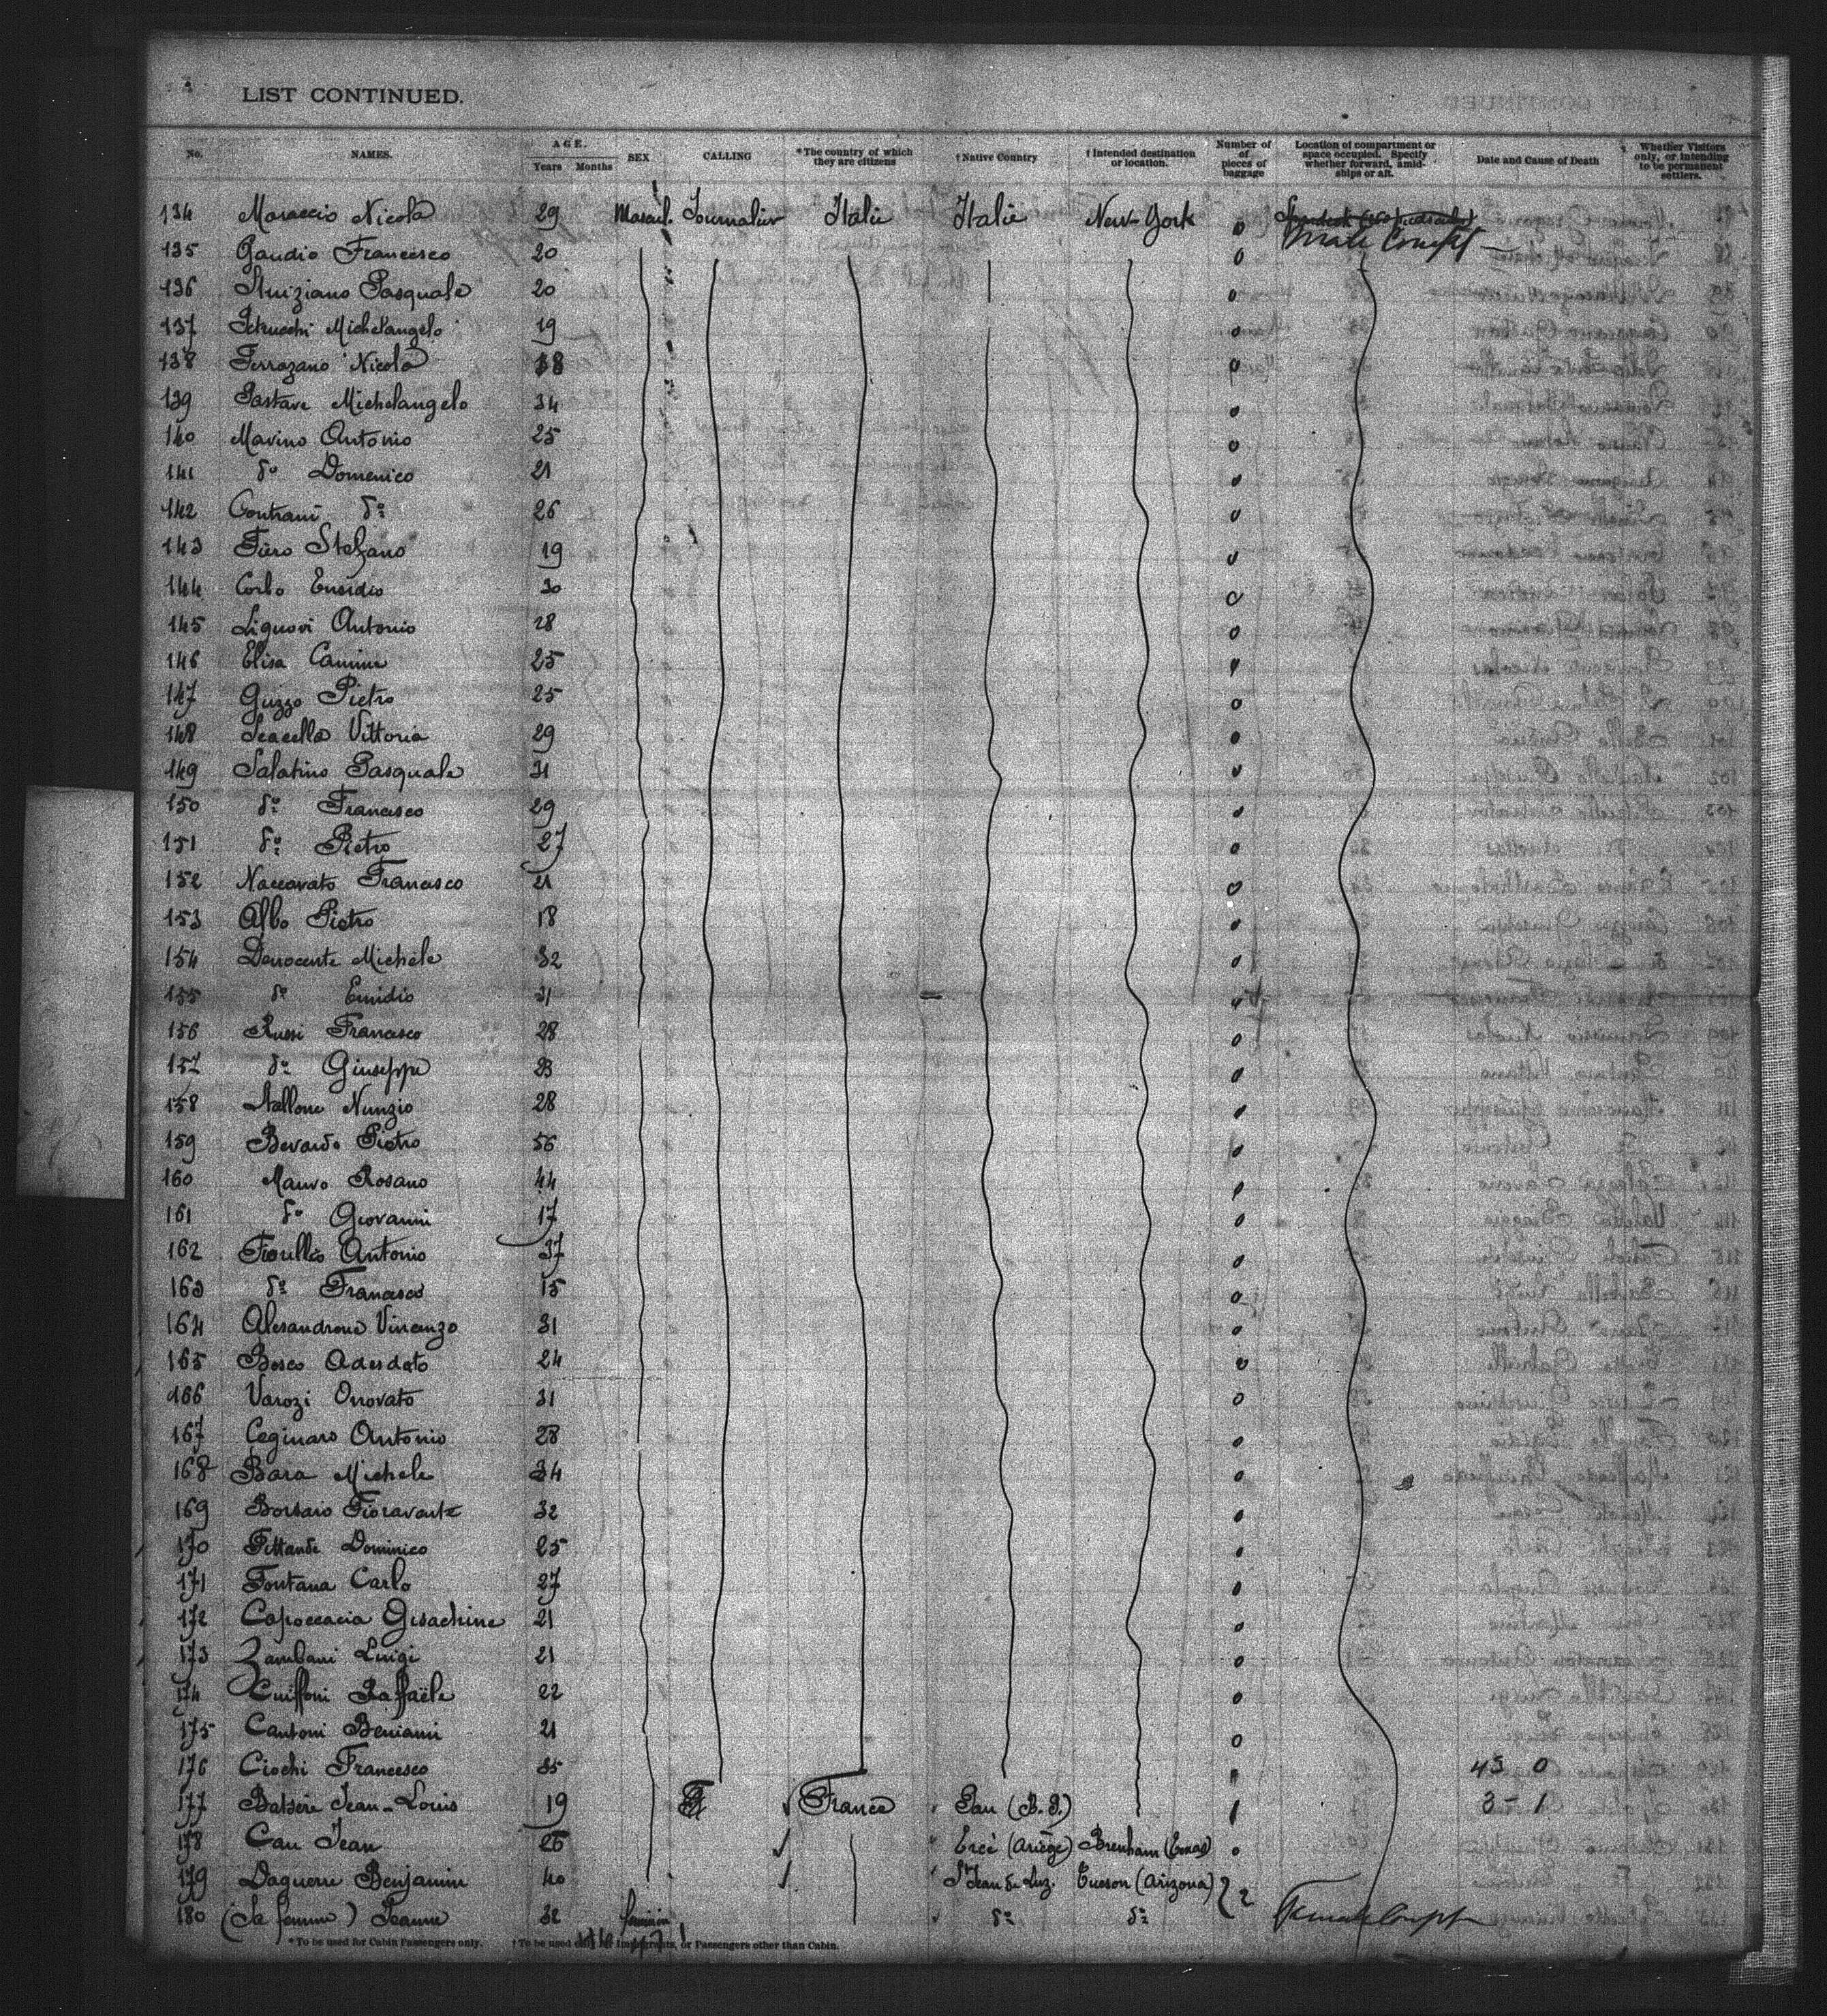 LIST CONTINUED.
No. NAMES. AGE. Years Months SEX CALLING *The country of which they are citizens † Native Country † Intended destination or location. Number of of pieces of baggage Location of compartment or space occupied. Specify whether forward, amid-ships or aft. Date and Cause of Death Whether Visitors only, or intending to be permanent settlers.
134 Maraccio Nicola 29 Mascul. Journalier Italie Italie New-York 0 Male Compt
135 Gaudio Francesco 20 0
136 Pasquale 20 0
137 Petrucchi Michelangelo 19 0
138 Ferrazano Nicola 18 0
139 Pastore Michelangelo 34 0
140 Marino Antonio 25 0
141 do Domenico 21 0
142 Contrani do 26 0
143 Fiero Stefano 19 0
144 Corbo Emidio 30 0
145 Liguori Antonio 28 0
146 Elisa Camine 25 0
147 Guzzo Pietro 25 0
148 Scacella Vittoria 29 0
149 Salatino Pasquale 31 0
150 do Francesco 29 0
151 do Pietro 27 0
152 Naccarato Francesco 21 0
153 Albo Pietro 18 0
154 Denocente Michele 32 0
155 do Emidio 31 0
156 Russi Francesco 28 0
157 do Giuseppe 23 0
158 Nallone Nunzio 28 0
159 Berardo Pietro 56 0
160 Mauro Rosano 44 0
161 do Giovanni 17 0
162 Fiorillio Antonio 37 0
163 do Francesco 15 0
164 Alesandrone Vincenzo 31 0
165 Bosco Adesdato 24 0
166 Varozi Onovato 31 0
167 Ceginaro Antonio 28 0
168 Bara Michele 34 0
169 Borsaro Fioravante 32 0
170 Pittande Dominico 25 0
171 Fontana Carlo 27 0
172 Capoccacia Gisachine 21 0
173 Zambani Luigi 21 0
174 Cuiffoni Raffaële 22 0
175 Cantoni Beniami 21 0
176 Ciochi Francesco 35 0 43 0
177 Batsère Jean-Louis 19 France Pau (B. P.) 1 3 - 1
178 Cau Jean 26 Ercé (Ariège) Brenham (Texas) 0
179 Daguerre Benjamin 40 St Jean de Luz. Tucson (Arizona) 2
180 (Sa femme) Jeanne 32 féminin do do Female Compt
*To be used for Cabin Passengers only. † To be used only for Immigrants, or Passengers other than Cabin.